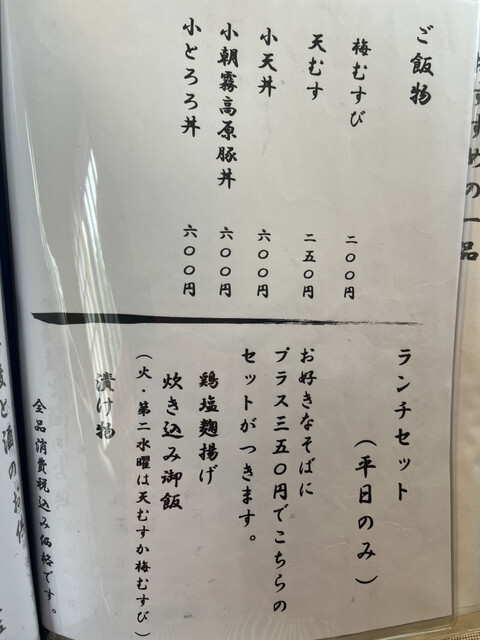 ご飯物
梅むすび 二〇〇円
天むす 二五〇円
小天丼 六〇〇円
小朝霧高原豚丼 六〇〇円
小とろろ丼 六〇〇円
ランチセット
（平日のみ）
お好きなそばに
プラス三五〇円でこちらの
セットがつきます。
鶏塩麹揚げ
炊き込み御飯
（火・第二水曜は天むすか梅むすび）
漬け物
全品消費税込み価格です。
すすめの一品